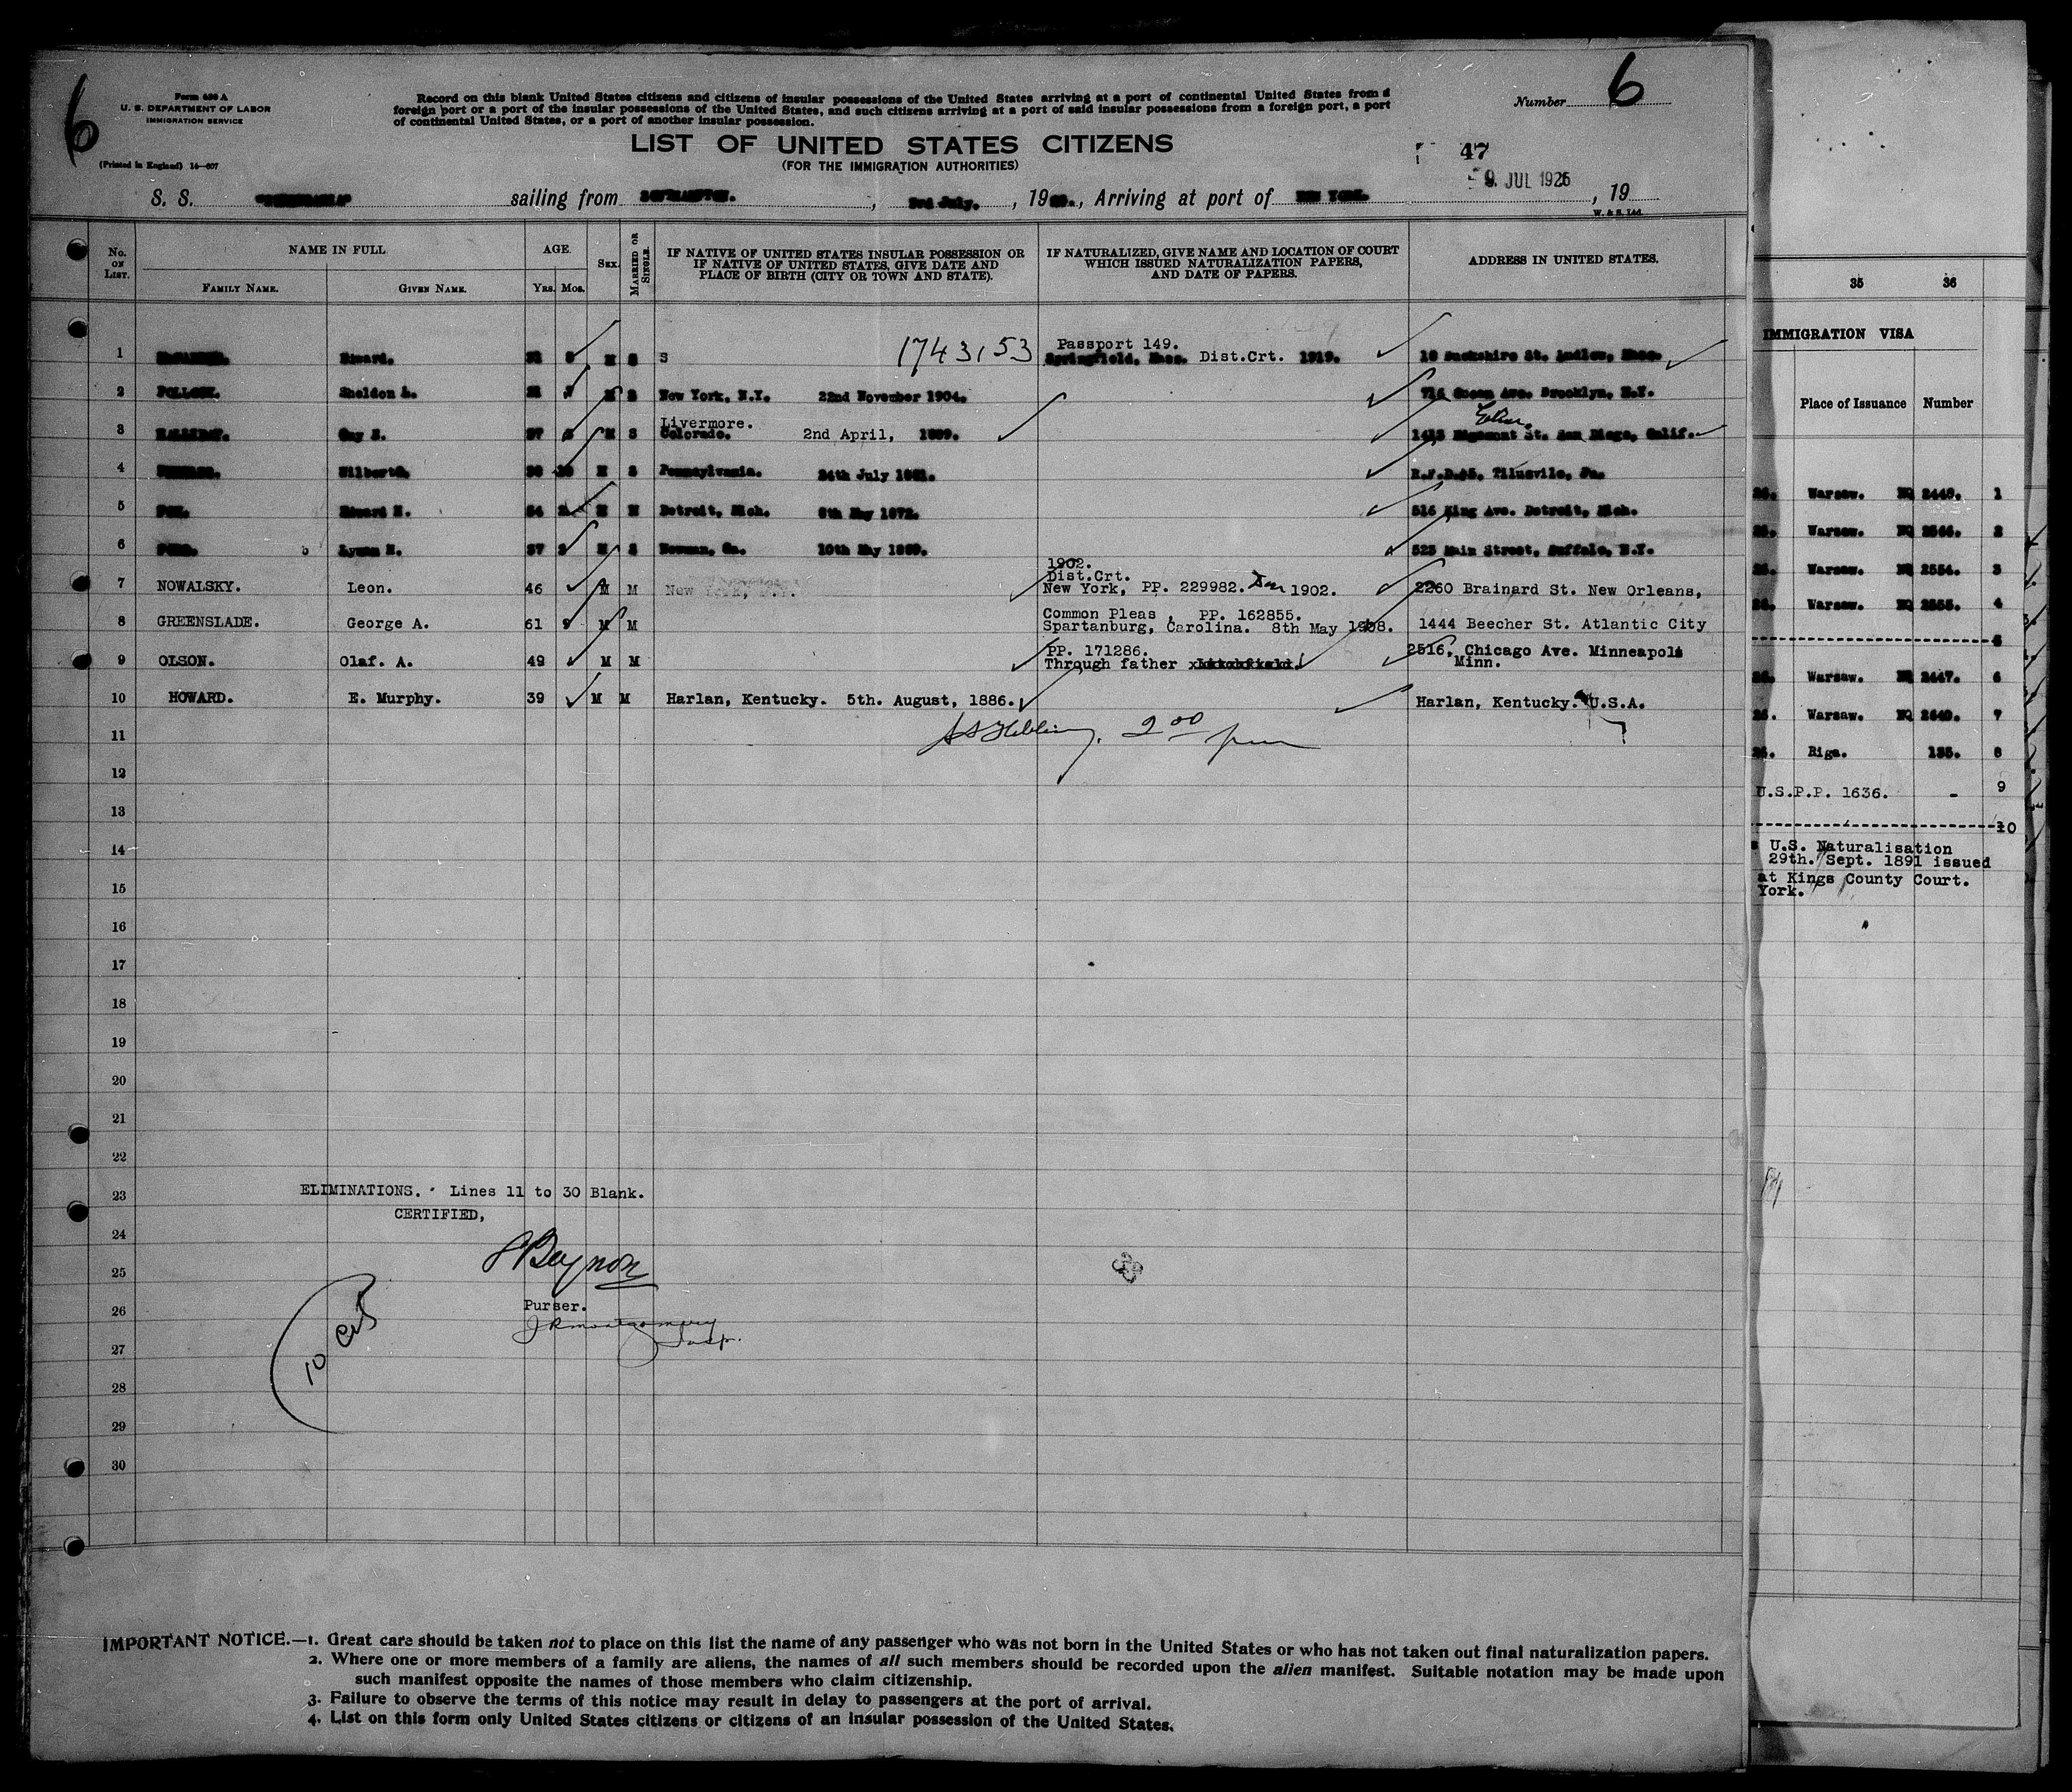 6
Form 630 A
U. S. DEPARTMENT OF LABOR
IMMIGRATION SERVICE
(Printed in England) 14—607
Record on this blank United States citizens and citizens of insular possessions of the United States arriving at a port of continental United States from a
foreign port or a port of the insular possessions of the United States, and such citizens arriving at a port of said insular possessions from a foreign port, a port
of continental United States, or a port of another insular possession.
Number 6
LIST OF UNITED STATES CITIZENS
(FOR THE IMMIGRATION AUTHORITIES)
47
9. JUL 1926
S. S. sailing from SOUTHAMPTON. , 3rd July. , 19 , Arriving at port of NEW YORK. , 19
W. & S. Ltd.
No. ON LIST.
NAME IN FULL
FAMILY NAME. GIVEN NAME.
AGE.
YRS. MOS.
SEX.
MARRIED OR SINGLE.
IF NATIVE OF UNITED STATES INSULAR POSSESSION OR
IF NATIVE OF UNITED STATES, GIVE DATE AND
PLACE OF BIRTH (CITY OR TOWN AND STATE).
IF NATURALIZED, GIVE NAME AND LOCATION OF COURT
WHICH ISSUED NATURALIZATION PAPERS,
AND DATE OF PAPERS.
ADDRESS IN UNITED STATES.
Passport 149.
1 Edward. M S S 1743153 Springfield, Mass. Dist.Crt. 1919. Ludlow, Mass.
2 POLLOCK. Sheldon A. 21 7 M S New York, N.Y. 22nd November 1904. Ocean Ave. Brooklyn, N.Y.
Livermore.
3 HALLIDAY. Guy E. M S Colorado. 2nd April, 1889. St. San Diego, Calif.
4 M S Pennsylvania. 24th July R.F.D. Pa.
5 FOX. Edward H. 54 M M Detroit, Mich. 8th May 1872. 516 King Ave. Detroit, Mich.
6 Lyman H. M S Newnan, Ga. 10th May 1889. 523 Main Street, Buffalo, N.Y.
1902.
Dist.Crt.
7 NOWALSKY. Leon. 46 M M New York, N.Y. New York, PP. 229982. Jan 1902. 2260 Brainard St. New Orleans,
Common Pleas , PP. 162855.
8 GREENSLADE. George A. 61 9 M M Spartanburg, Carolina. 8th May 1908. 1444 Beecher St. Atlantic City
PP. 171286.
9 OLSON. Olaf. A. 49 M M Through father 2516, Chicago Ave. Minneapolis
Minn.
10 HOWARD. E. Murphy. 39 M M Harlan, Kentucky. 5th. August, 1886. Harlan, Kentucky. U.S.A.
11
2 00 pm
12
13
14
15
16
17
18
19
20
21
22
23
ELIMINATIONS. Lines 11 to 30 Blank.
CERTIFIED,
24
Beynon
25
26
Purser.
J R Montgomery
Insp.
27
10
28
29
30
IMPORTANT NOTICE.—1. Great care should be taken not to place on this list the name of any passenger who was not born in the United States or who has not taken out final naturalization papers.
2. Where one or more members of a family are aliens, the names of all such members should be recorded upon the alien manifest. Suitable notation may be made upon
such manifest opposite the names of those members who claim citizenship.
3. Failure to observe the terms of this notice may result in delay to passengers at the port of arrival.
4. List on this form only United States citizens or citizens of an insular possession of the United States.
35 36
IMMIGRATION VISA
Place of Issuance Number
Warsaw. NQ 2448. 1
Warsaw. NQ 2544. 2
Warsaw. NQ 2554. 3
Warsaw. NQ 2555. 4
5
Warsaw. NQ 2447. 6
Warsaw. NQ 2640. 7
Riga. 135. 8
U.S.P.P. 1636. - 9
10
U.S. Naturalisation
29th. Sept. 1891 issued
at Kings County Court.
York.